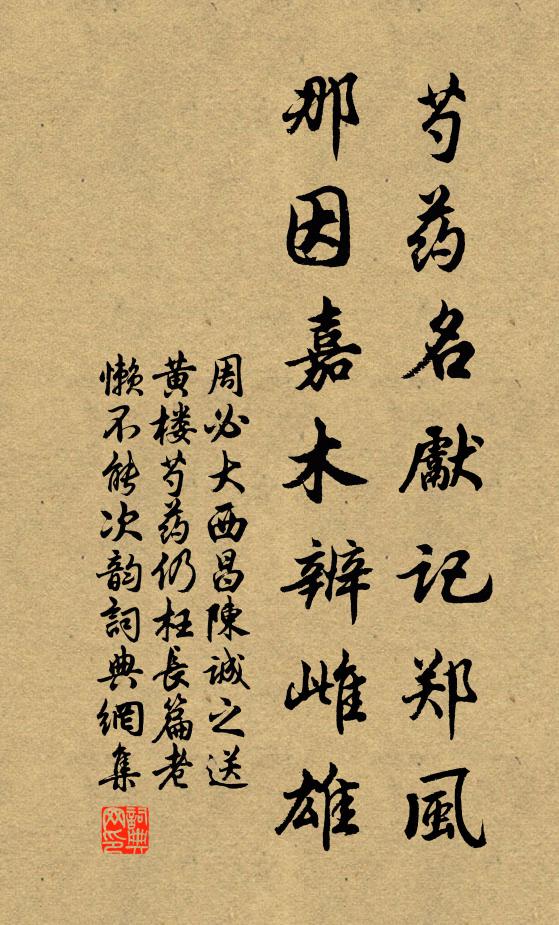 芍药名獻记郑風
那因嘉木辨雌雄
周必大西昌陳诚之送
黄楼芍药仍枉长篇老
懒不能次韵詞典網集
詞典网印